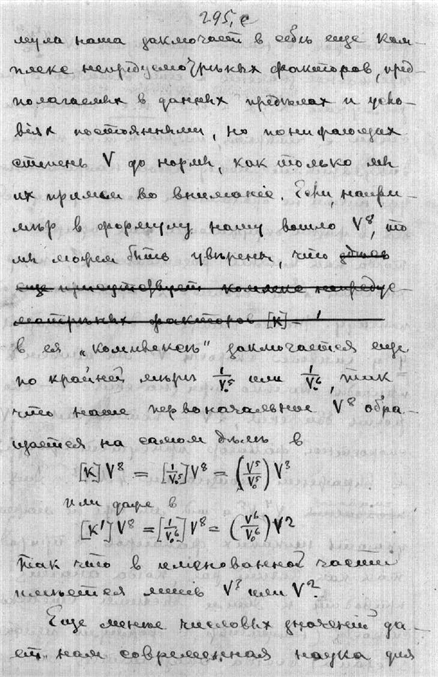 295, е
мула наша заключает в себѣ еще ком-
плекс непредусмотрѣнных факторов, пред-
полагаемых в данных предѣлах и усло-
віях постоянными, но понифающих
степень V до нормы, как только мы
их примем во вниманіе. Если, напри-
мѣр в формулу нашу вошло V⁸, то
мы можем быть увѣрены, что здѣсь
еще присутствует комплекс непредус-
мотрѣнных факторов [K] —
в ея „комплексѣ" заключается еще
по крайней мѣрѣ 1/V₀⁵ или 1/V₀⁶, так
что наше первоначальное V⁸ обра-
щается на самом дѣлѣ в
[K] V⁸ = [1/V₀⁵] V⁸ = (V⁵/V₀⁵) V³
или даже в
[K'] V⁸ = [1/V₀⁶] V⁸ = (V⁶/V₀⁶) V²
Так что в именованной части
имѣется лишь V³ или V².
Еще менѣе числовых значений да-
ет нам современная наука для